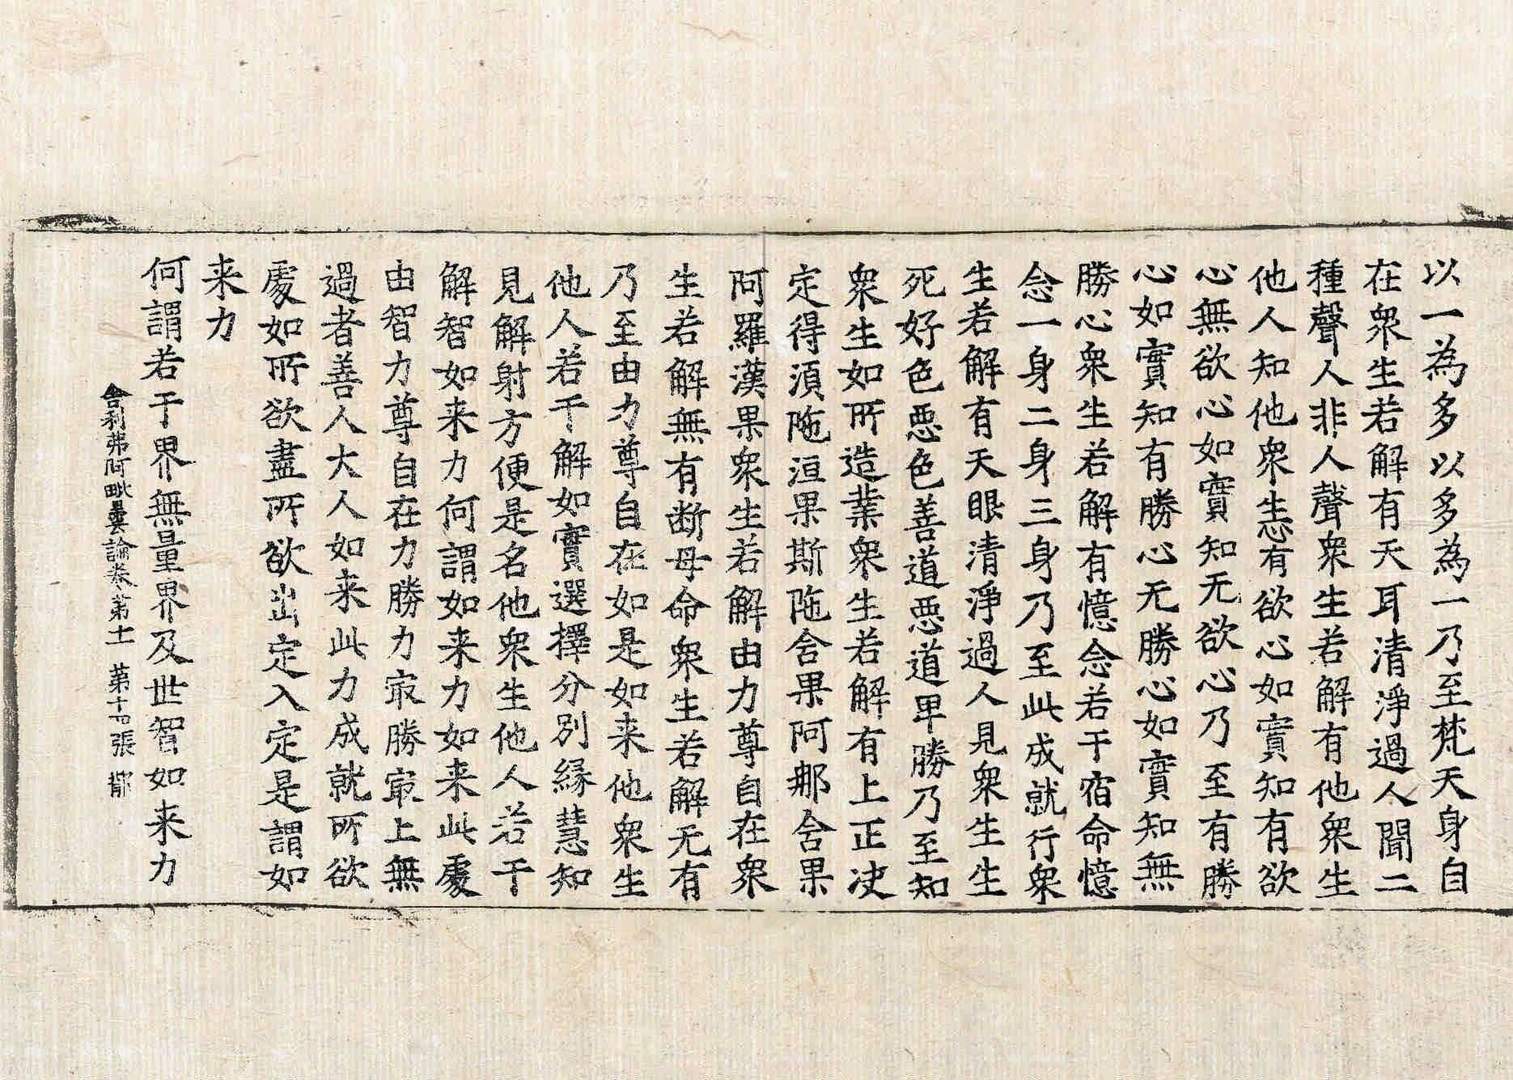 以一為多以多為一乃至梵天身自
在衆生若解有天耳清淨過人聞二
種聲人非人聲衆生若解有他衆生
他人知他衆生恚有欲心如實知有欲
心無欲心如實知无欲心乃至有勝
心如實知有勝心无勝心如實知無
勝心衆生若解有憶念若干宿命憶
念一身二身三身乃至此成就行衆
生若解有天眼清淨過人見衆生生
死好色惡色善道惡道卑勝乃至知
衆生如所造業衆生若解有上正决
定得湏陁洹果斯陁含果阿那含果
阿羅漢果衆生若解由力尊自在衆
生若解無有断母命衆生若解无有
乃至由力尊自在如是如来他衆生
他人若干解如實選擇分別緣慧知
見解射方便是名他衆生他人若干
解智如来力何謂如来力如来此處
由智力尊自在力勝力冣勝冣上無
過者善人大人如来此力成就所欲
處如所欲盡所欲出定入定是謂如
来力
何謂若干界無量界及世智如来力
舍利弗阿毗曇論卷第十一 第十四張